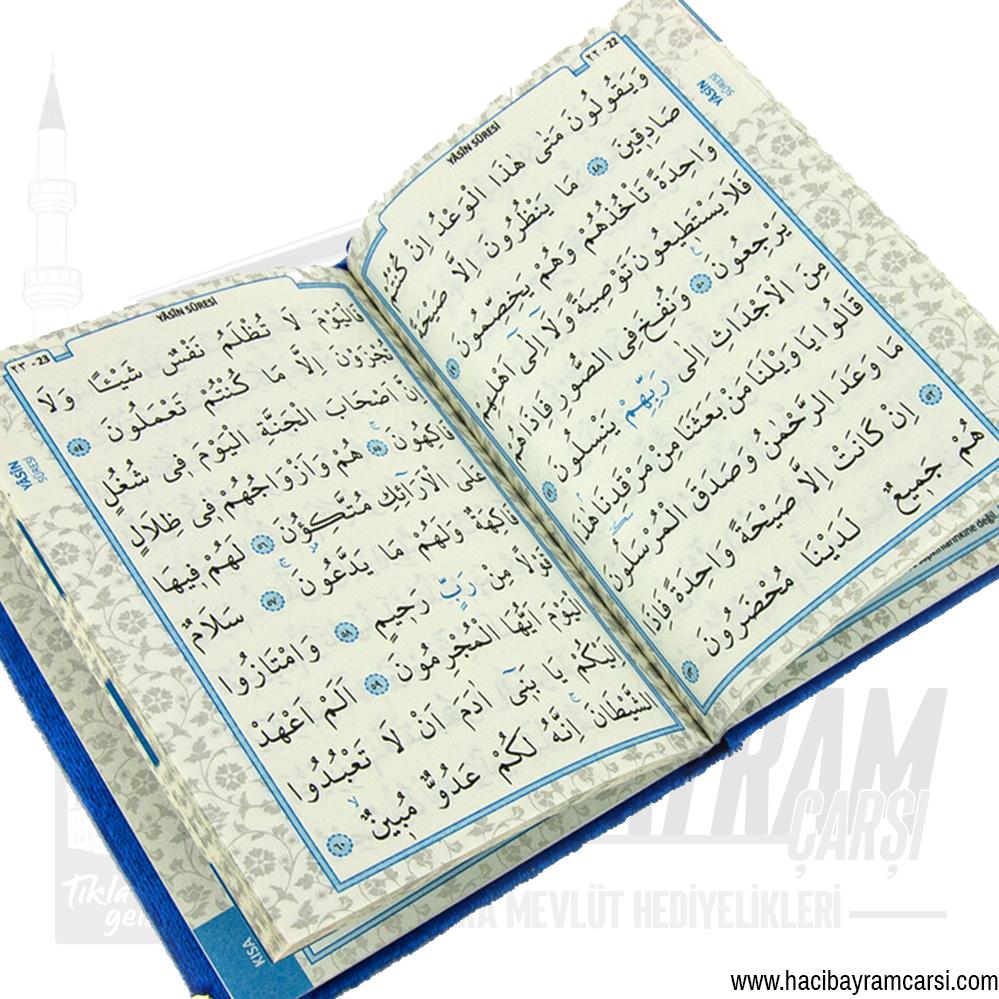 YÂSİN SÛRESİ
٢٢ - 22
YÂSİN
SÛRESİ
وَيَقُولُونَ مَتٰى هٰذَا الْوَعْدُ اِنْ كُنْتُمْ
صَادِقٖينَ ٤٨ مَا يَنْظُرُونَ اِلَّا صَيْحَةً
وَاحِدَةً تَاْخُذُهُمْ وَهُمْ يَخِصِّمُونَ ٤٩
فَلَا يَسْتَطٖيعُونَ تَوْصِيَةً وَلَٓا اِلٰٓى اَهْلِهِمْ
يَرْجِعُونَ ٥٠ وَنُفِخَ فِى الصُّورِ فَاِذَا هُمْ
مِنَ الْاَجْدَاثِ اِلٰى رَبِّهِمْ يَنْسِلُونَ ٥١
قَالُوا يَا وَيْلَنَا مَنْ بَعَثَنَا مِنْ مَرْقَدِنَا هٰذَا
مَا وَعَدَ الرَّحْمٰنُ وَصَدَقَ الْمُرْسَلُونَ ٥٢
اِنْ كَانَتْ اِلَّا صَيْحَةً وَاحِدَةً فَاِذَا
هُمْ جَمٖيعٌ لَدَيْنَا مُحْضَرُونَ
YÂSİN SÛRESİ
٢٣ - 23
YÂSİN
SÛRESİ
فَالْيَوْمَ لَا تُظْلَمُ نَفْسٌ شَيْـًٔا وَلَا
تُجْزَوْنَ اِلَّا مَا كُنْتُمْ تَعْمَلُونَ ٥٤
اِنَّ اَصْحَابَ الْجَنَّةِ الْيَوْمَ فٖى شُغُلٍ
فَاكِهُونَ ٥٥ هُمْ وَاَزْوَاجُهُمْ فٖى ظِلَالٍ
عَلَى الْاَرَٓائِكِ مُتَّكِؤُنَ ٥٦ لَهُمْ فٖيهَا
فَاكِهَةٌ وَلَهُمْ مَا يَدَّعُونَ ٥٧ سَلَامٌ
قَوْلًا مِنْ رَبٍّ رَحٖيمٍ ٥٨ وَامْتَازُوا
الْيَوْمَ اَيُّهَا الْمُجْرِمُونَ ٥٩ اَلَمْ اَعْهَدْ
اِلَيْكُمْ يَا بَنٖٓى اٰدَمَ اَنْ لَا تَعْبُدُوا
الشَّيْطَانَ اِنَّهُ لَكُمْ عَدُوٌّ مُبٖينٌ ٦٠
KISA
ÇARŞI
MEVLÜT HEDİYELİKLERİ
www.hacibayramcarsi.com